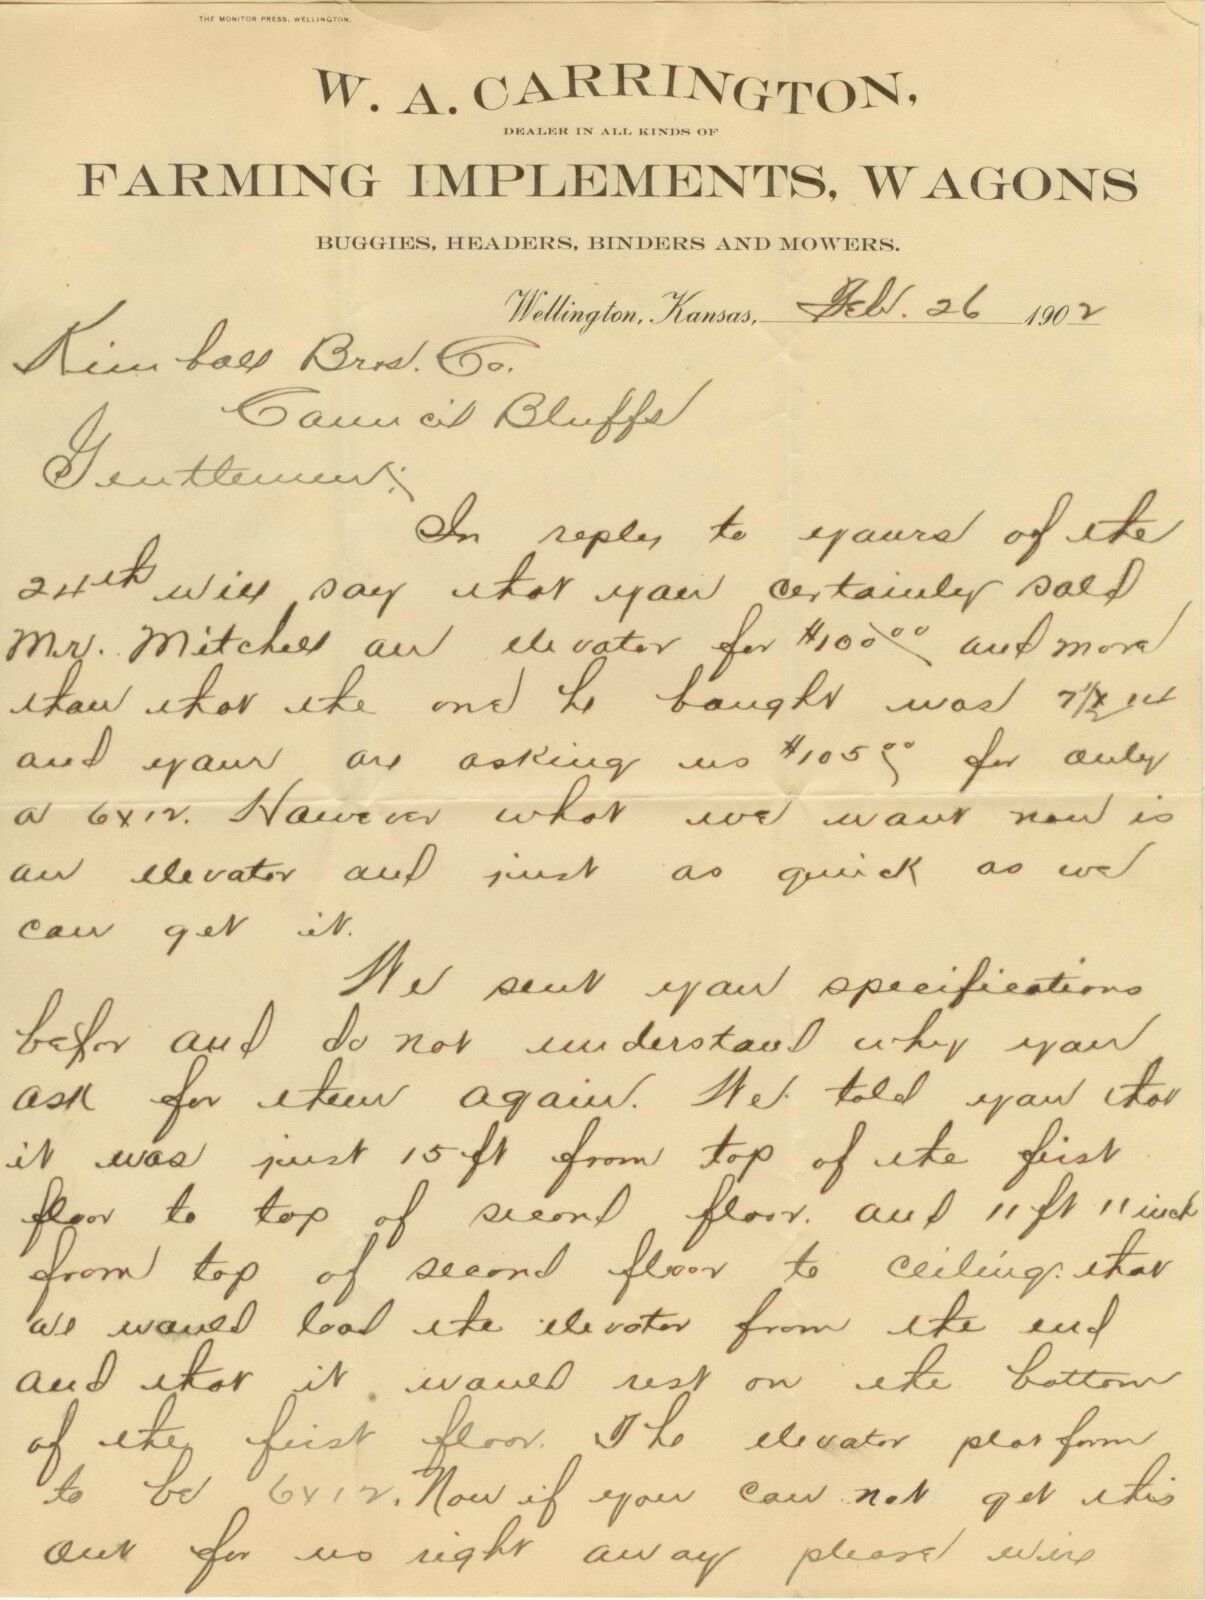 THE MONITOR PRESS, WELLINGTON.
W. A. CARRINGTON,
DEALER IN ALL KINDS OF
FARMING IMPLEMENTS, WAGONS
BUGGIES, HEADERS, BINDERS AND MOWERS.
Wellington, Kansas, Feb. 26 1902
Kimball Bros. Co.
Council Bluffs
Gentlemen;
In reply to yours of the
24th will say that you certainly sold
Mr. Mitchell an elevator for $100 00 and more
than that the one he bought was 7½ x 14
and your are asking us $105 00 for only
a 6x12. However what we want now is
an elevator and just as quick as we
can get it.
We sent you specifications
befor and do not understand why you
ask for them again. We told you that
it was just 15 ft from top of the first
floor to top of second floor. and 11 ft 11 inch
from top of second floor to ceiling. that
we would load the elevator from the end
and that it would rest on the bottom
of the first floor. The elevator platform
to be 6x12. Now if you can not get this
out for us right away please wire